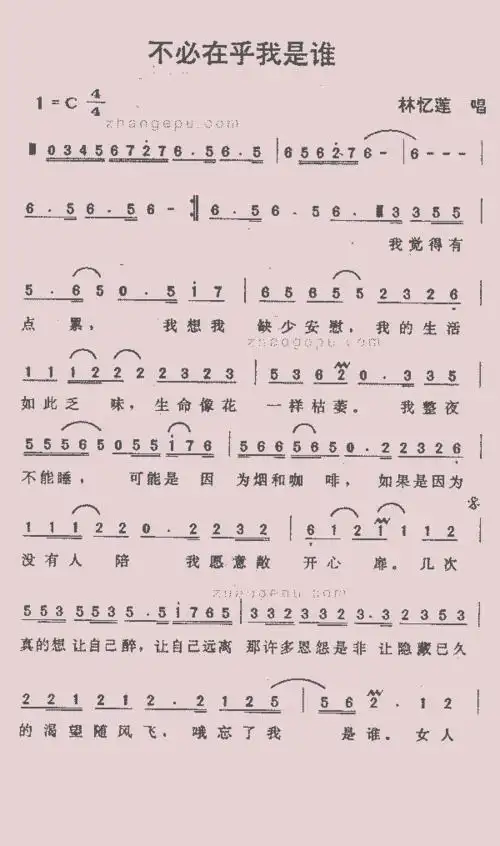 不必在乎我是谁
1=C 4/4 林忆莲 唱
zhangepu.com
0345672767 6.56.5 | 6562·76- | 6---
6.56.56- :| 6.56.56. 3355
我觉得有
5.650.5i7 | 65656552326
点累，我想我 缺少安慰，我的生活
zhaogepu.com
1112222323 | 53620.335
如此乏味，生命像花 一样枯萎。我整夜
55565055i76 | 5665650.22326
不能睡，可能是因 为烟和咖啡，如果是因为
111220.2232 | 6121112
没有人陪 我愿意敞 开心扉。几次
5535535.5i765 | 3323323.32353
真的想让自己醉，让自己远离 那许多恩怨是非 让隐藏已久
221212.2125 | 562.12
的渴望随风飞，哦忘了我 是谁。女人